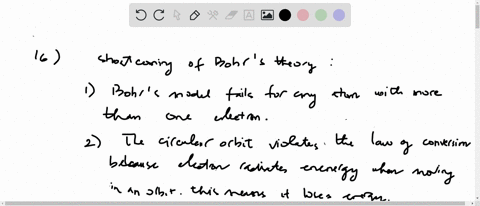 16) shortcoming of Bohr's theory :
1) Bohr's model fails for any atom with more
than one electron.
2) The circular orbit violates the law of conversion
because electron radiates energy when moving
in an orbit. this means it loses energy.